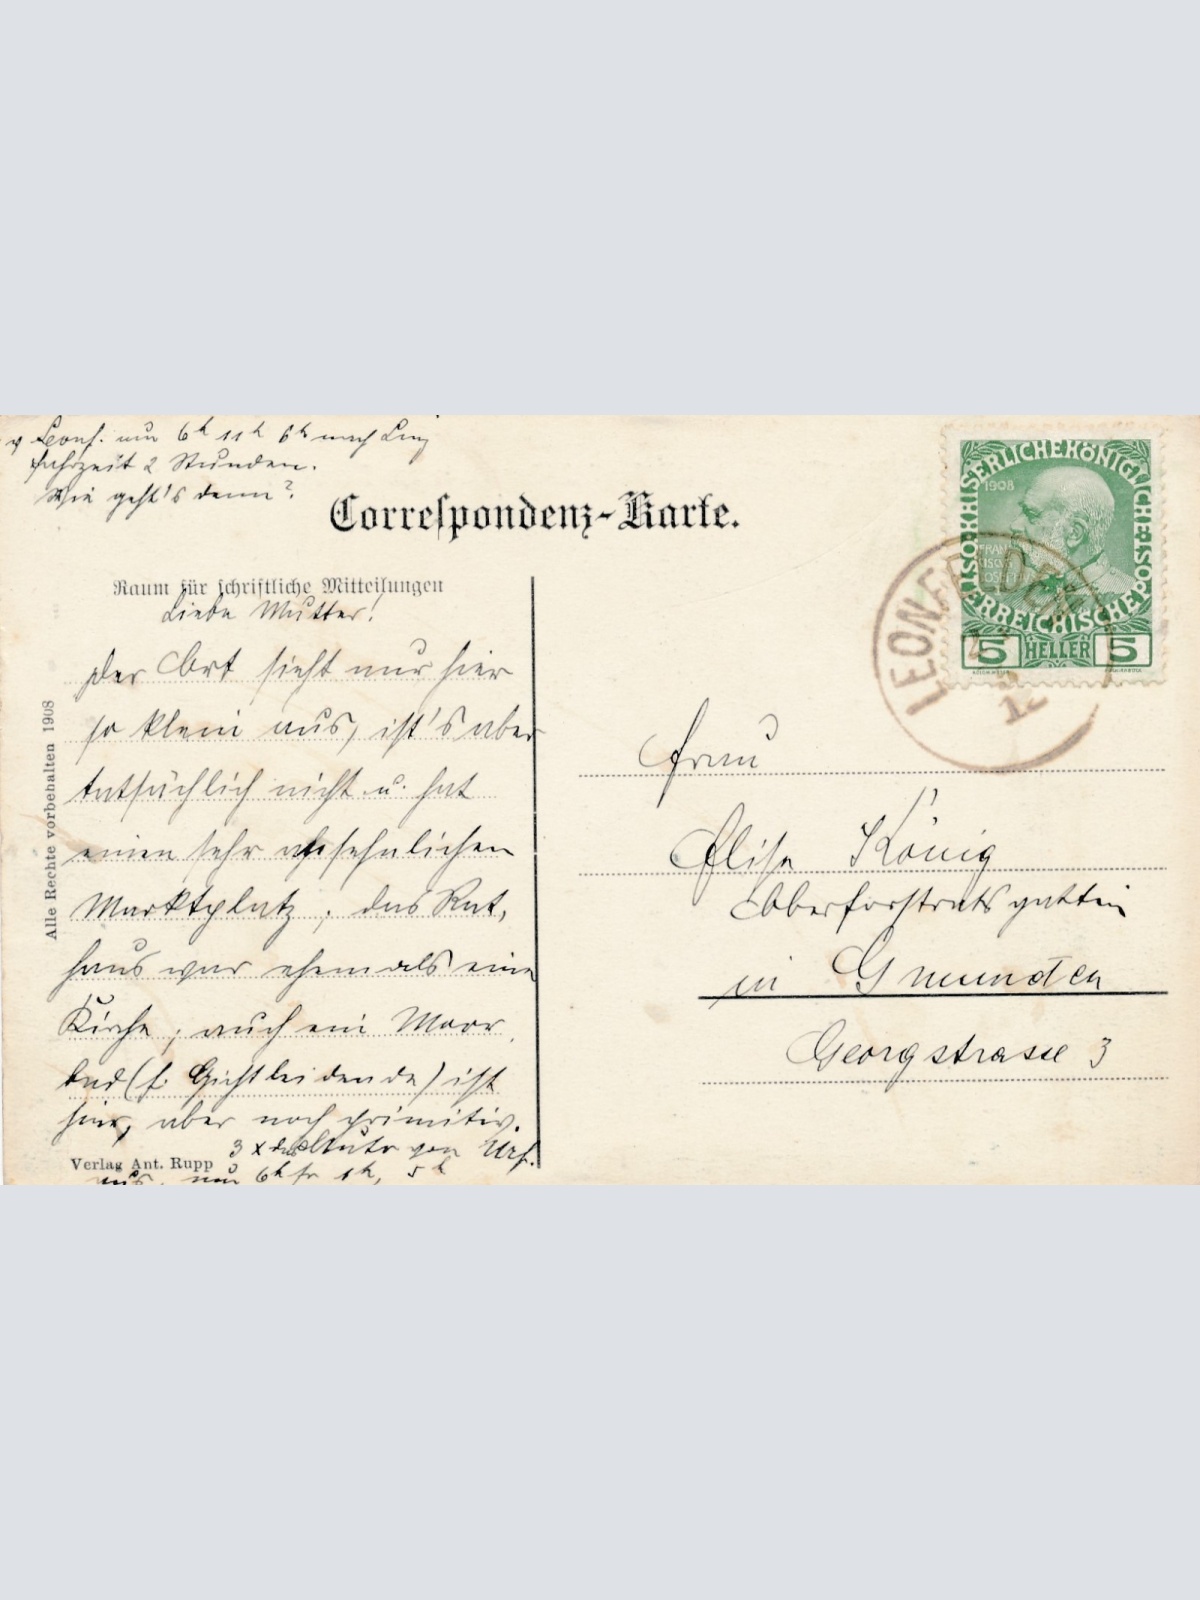 v Leonf. um 6h 11h 6h nach Linz
Fahrzeit 2 Stunden.
Wie geht's denn?
Correspondenz-Karte.
Raum für schriftliche Mitteilungen
Liebe Mutter!
Der Ort sieht nur hier
so klein aus, ist's aber
tatsächlich nicht u. hat
einen sehr ansehnlichen
Marktplatz, das Rat,
haus war ehemals eine
Kirche, auch ein Moor
bad (f. Gichtleidende) ist
hier, aber noch primitiv.
3 x das Auto von Urf.
aus, um 6h fr 1h, 5h
Verlag Ant. Rupp
Alle Rechte vorbehalten 1908
KAISERLICHE KÖNIGLICHE ÖSTERREICHISCHE POST
1908
FRANZ
5 HELLER 5
LEONFELDEN
Frau
Elise König
Oberforstratsgattin
in Gmunden
Georgstrasse 3